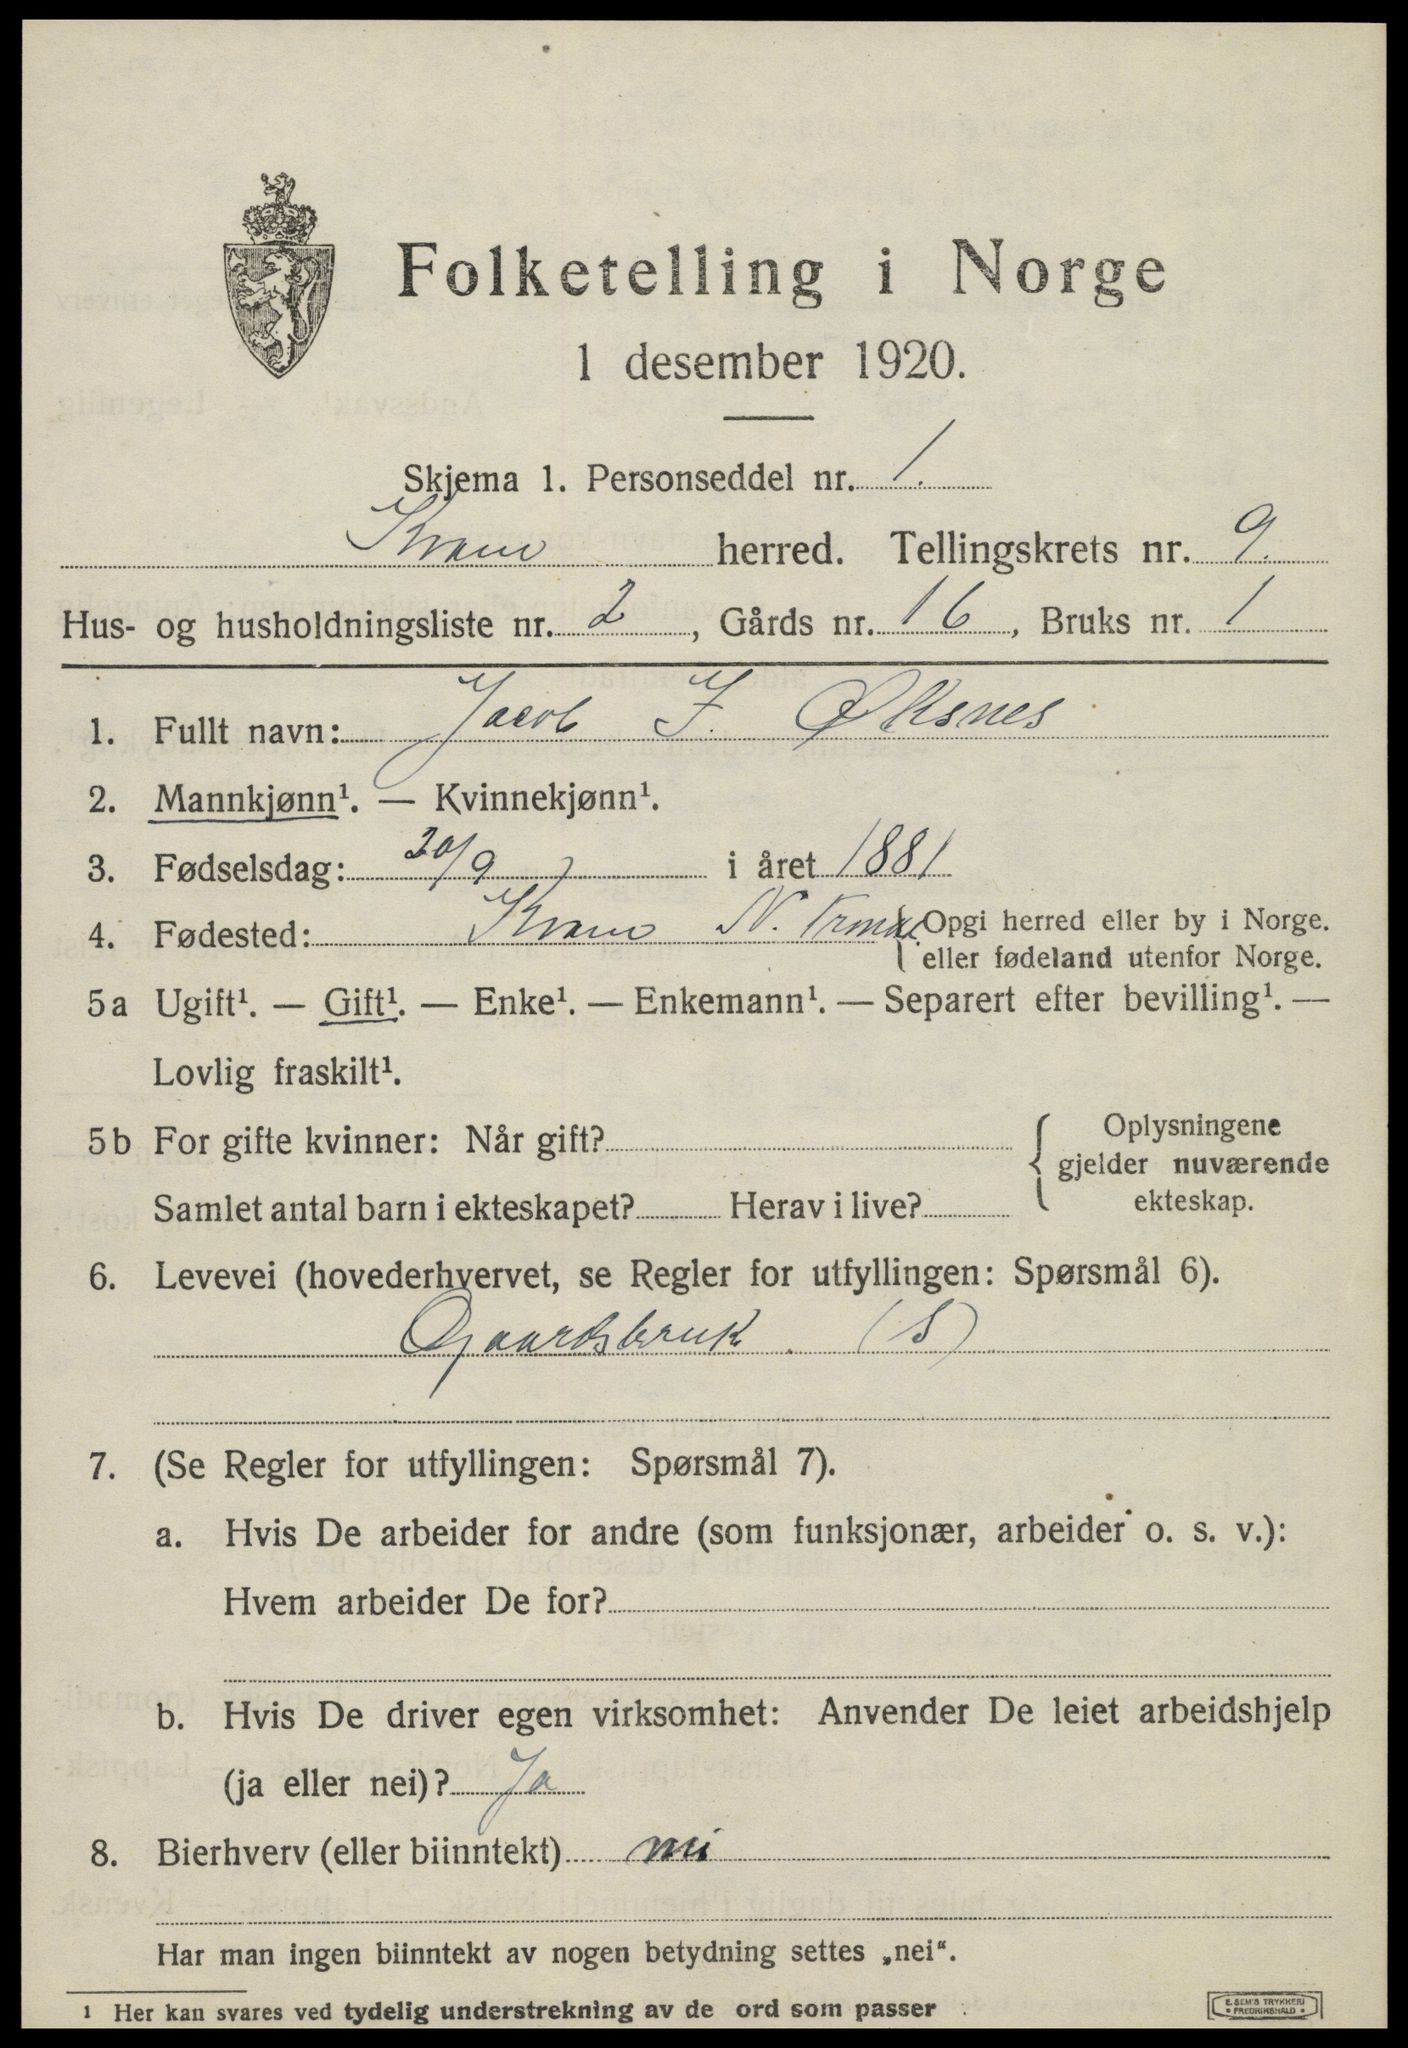 Folketelling i Norge
1 desember 1920.
Skjema 1. Personseddel nr. 1.
Kvam herred. Tellingskrets nr. 9.
Hus- og husholdningsliste nr. 2, Gårds nr. 16, Bruks nr. 1
1. Fullt navn: Jacob J. Øksnes
2. Mannkjønn¹. — Kvinnekjønn¹.
3. Fødselsdag: 20/9 i året 1881
4. Fødested: Kvam N. Trond. { Opgi herred eller by i Norge.
eller fødeland utenfor Norge.
5a Ugift¹. — Gift¹. — Enke¹. — Enkemann¹. — Separert efter bevilling¹. —
Lovlig fraskilt¹.
5b For gifte kvinner: Når gift?
Samlet antal barn i ekteskapet? Herav i live?
{ Oplysningene
gjelder nuværende
ekteskap.
6. Levevei (hovederhvervet, se Regler for utfyllingen: Spørsmål 6).
Gaardsbruk (S)
7. (Se Regler for utfyllingen: Spørsmål 7).
a. Hvis De arbeider for andre (som funksjonær, arbeider o. s. v.):
Hvem arbeider De for?
b. Hvis De driver egen virksomhet: Anvender De leiet arbeidshjelp
(ja eller nei)? Ja
8. Bierhverv (eller biinntekt) nei
Har man ingen biinntekt av nogen betydning settes „nei“.
1 Her kan svares ved tydelig understrekning av de ord som passer
E. SEM'S TRYKKERI
• FREDRIKSHALD •